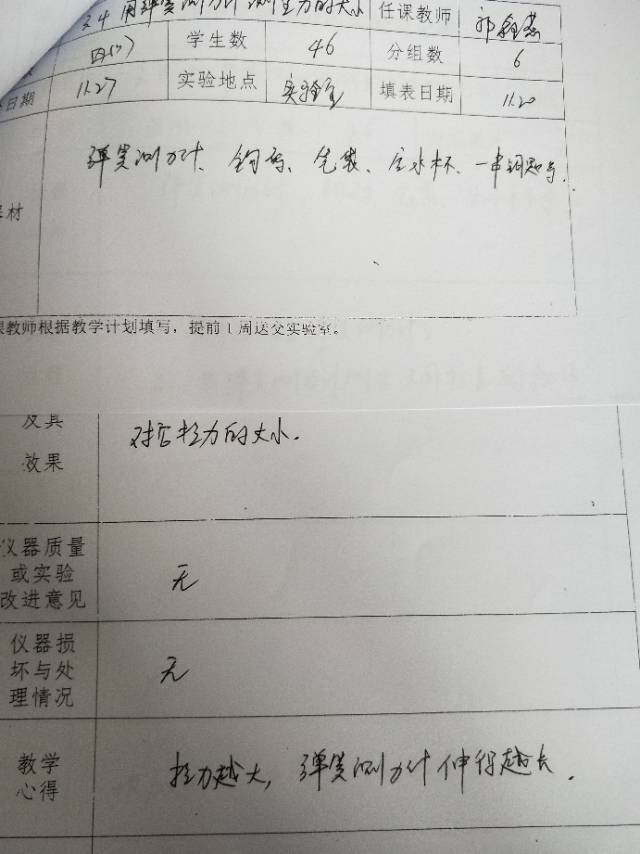 3.4 用弹簧测力计测量力的大小 任课教师
四(7) 学生数 46 分组数 6
日期 11.27 实验地点 实验室 填表日期 11.20
弹簧测力计、钩码、笔袋、水杯、一串钥匙等.
材
课教师根据教学计划填写，提前1周送交实验室。
及其
效果
拉力的大小.
仪器质量
或实验
改进意见
无
仪器损
坏与处
理情况
无
教学
心得
拉力越大，弹簧测力计伸得越长.